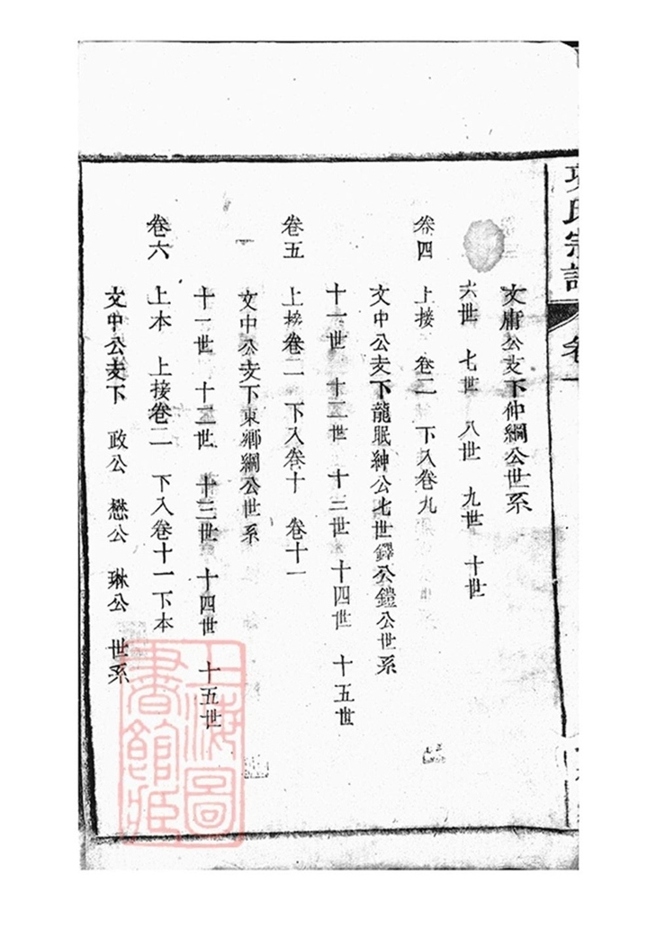 氏宗譜 卷一
文庸公支下仲綱公世系
六世 七世 八世 九世 十世
卷四 上接 卷二 下入卷九
文中公支下龍眠紳公七世鐸公鎧公世系
十一世 十二世 十三世 十四世 十五世
卷五 上接卷二 下入卷十 卷十一
文中公支下東鄉綱公世系
十一世 十二世 十三世 十四世 十五世
卷六 上本 上接卷二 下入卷十一下本
文中公支下 政公 懋公 琳公 世系
上海圖
書館藏